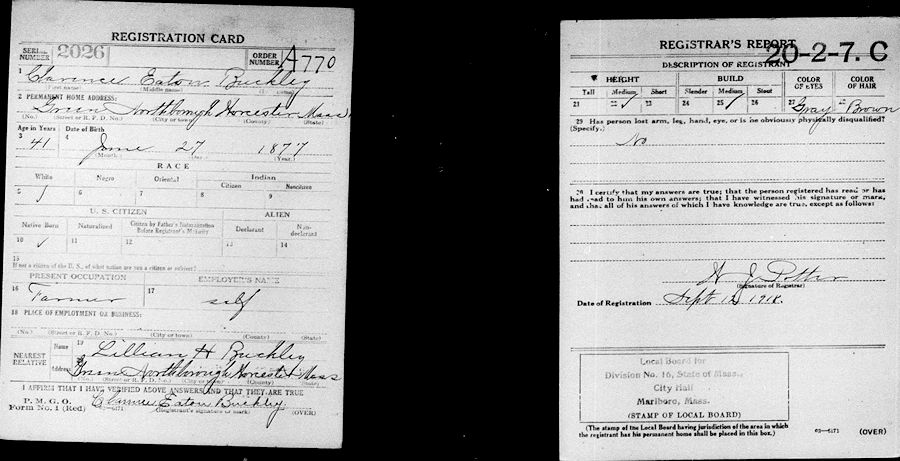 REGISTRATION CARD
SERIAL NUMBER 2026 ORDER NUMBER A770
1 Clarence Eaton Buckley
(First name) (Middle name) (Last name)
2 PERMANENT HOME ADDRESS:
Green Northborough Worcester Mass
(No.) (Street or R. F. D. No.) (City or town) (County) (State)
Age in Years Date of Birth
3 41 4 June 27 1877
(Month.) (Day.) (Year.)
RACE
White Negro Oriental Indian
Citizen Noncitizen
5 ✓ 6 7 8 9
U. S. CITIZEN ALIEN
Native Born Naturalized Citizen by Father's Naturalization Before Registrant's Majority Declarant Non-declarant
10 ✓ 11 12 13 14
15
If not a citizen of the U. S., of what nation are you a citizen or subject?
PRESENT OCCUPATION EMPLOYER'S NAME
16 Farmer 17 self
18 PLACE OF EMPLOYMENT OR BUSINESS:
(No.) (Street or R. F. D. No.) (City or town) (County) (State)
NEAREST RELATIVE Name 19 Lillian H Buckley
Address 20 Green Northborough Worcester Mass
(No.) (Street or R. F. D. No.) (City or town) (County) (State)
I AFFIRM THAT I HAVE VERIFIED ABOVE ANSWERS AND THAT THEY ARE TRUE
P. M. G. O.
Form No. 1 (Red) 03—6171 Clarence Eaton Buckley
(Registrant's signature or mark) (OVER)
REGISTRAR'S REPORT
20-2-7. C
DESCRIPTION OF REGISTRANT
HEIGHT BUILD COLOR OF EYES COLOR OF HAIR
Tall Medium Short Slender Medium Stout
21 22 ✓ 23 24 25 ✓ 26 27 Gray 28 Brown
29 Has person lost arm, leg, hand, eye, or is he obviously physically disqualified?
(Specify.)
No
30 I certify that my answers are true; that the person registered has read or has
had read to him his own answers; that I have witnessed his signature or mark,
and that all of his answers of which I have knowledge are true, except as follows:
(Signature of Registrar)
Date of Registration Sept 12 1918.
Local Board for
Division No. 16, State of Mass.,
City Hall
Marlboro, Mass.
(STAMP OF LOCAL BOARD)
(The stamp of the Local Board having jurisdiction of the area in which
the registrant has his permanent home shall be placed in this box.)
03—6171 (OVER)